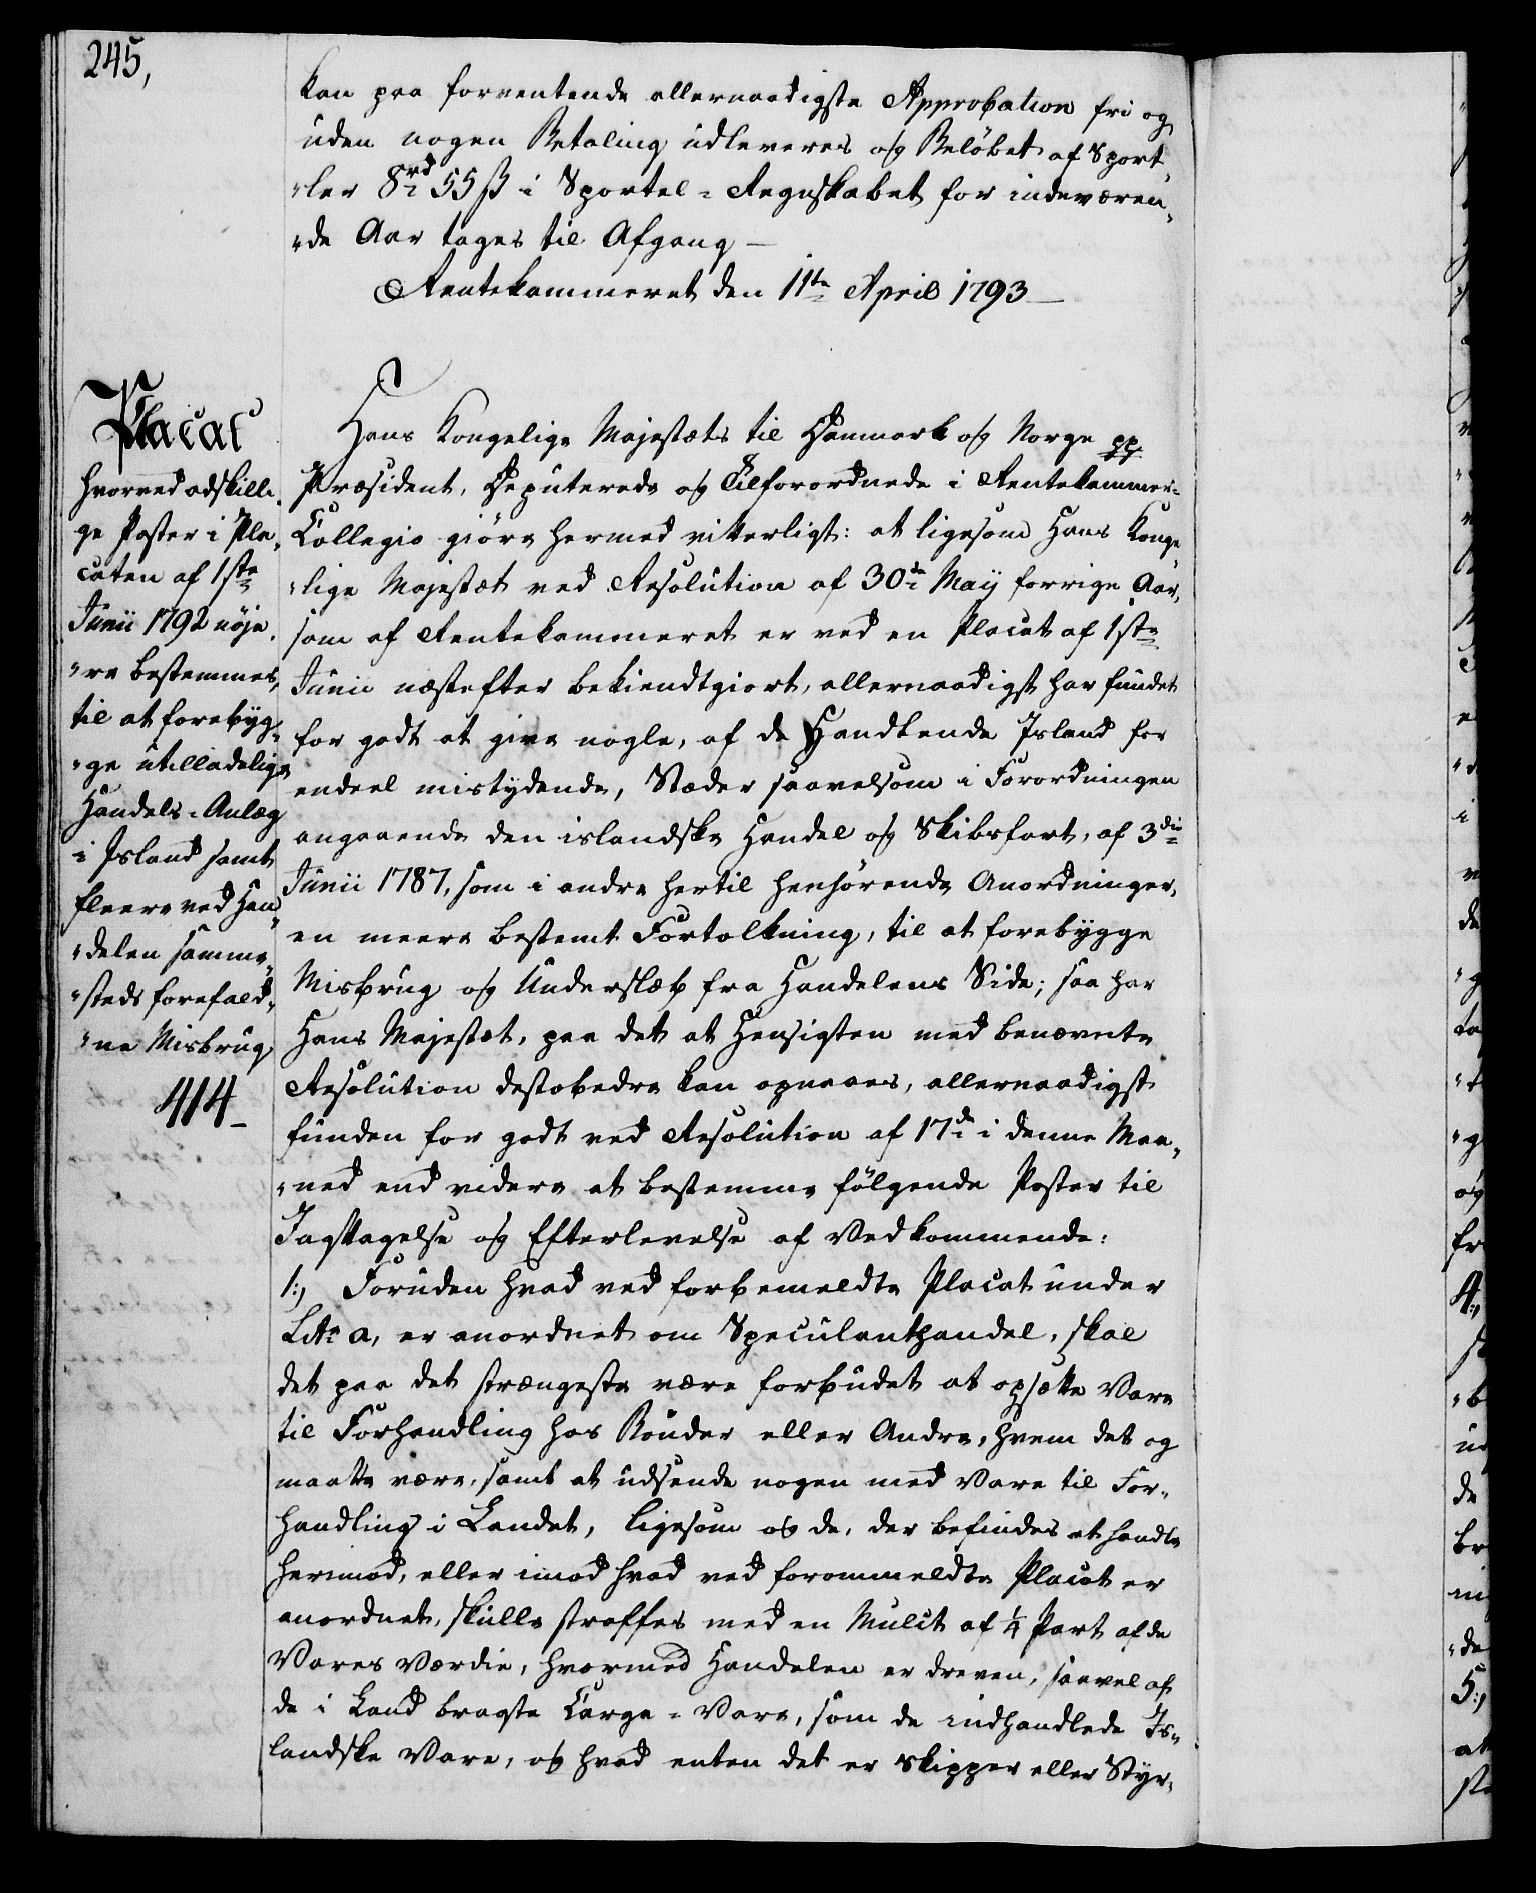 245,
kan paa forventende allernaadigste Approbation frie og
uden nogen Betaling udleveres og Beløbet af Sport,
"ler 8 rd 55 ß i Sportel-Regnskabet for indeværen,
"de Aar tages til Afgang —
Rentekammeret den 11te April 1793 —
Placat
hvorved adskilli,
ge Poster i Pla,
caten af 1ste
Junii 1792 nøje,
"re bestemmes,
til at forebyg,
"ge utilladelige
Handels-Anlæg
i Island samt
fleere ved Han,
"delen samme,
"steds forefald,
"ne Misbrug
414—
Hans Kongelige Majestæts til Danmark og Norge pp
Præsident, Deputerede og Tilforordnede i Rentekammer-
Collegio giøre hermed vitterligt: at ligesom Hans Konge
"lige Majestæt ved Resolution af 30de Maij forrige Aar,
som af Rentekammeret er ved en Placat af 1ste
Junii næstefter bekiendtgiort, allernaadigst har fundet
for godt at give nogle, af de Handlende Island for
endeel mistydende, Stæder saavelsom i Forordningen
angaaende den islandske Handel og Skibsfart, af 3die
Junii 1787, som i andre hertil henhørende Anordninger,
en meere bestemt Fortolkning, til at forebygge
Misbrug og Underslæb fra Handelens Side; saa har
Hans Majestæt, paa det at Hensigten med benævnte
Resolution destobedre kan opnaaes, allernaadigst
funden for godt ved Resolution af 17de i denne Maa,
"ned end videre at bestemme følgende Poster til
Iagttagelse og Efterlevelse af Vedkommende:
1:, Foruden hvad ved forbemeldte Placat under
Litr a, er anordnet om Speculanthandel, skal
det paa det strængeste være forbudet at opsætte Vare
til Forhandling hos Bönder eller Andre, hvem det og
maatte være, samt at udsende nogen med Vare til For,
handling i Landet, ligesom og de, der befindes at handle
herimod, eller imod hvad ved forommeldte Placat er
anordnet, skulle straffes med en Mulct af 1/4 Part af de
Vares Værdie, hvormed Handelen er dreven, saavel af
de i Land bragte Cargo-Vare, som de indhandlede Is,
landske Vare, og hvad enten det er Skipper eller Styr,